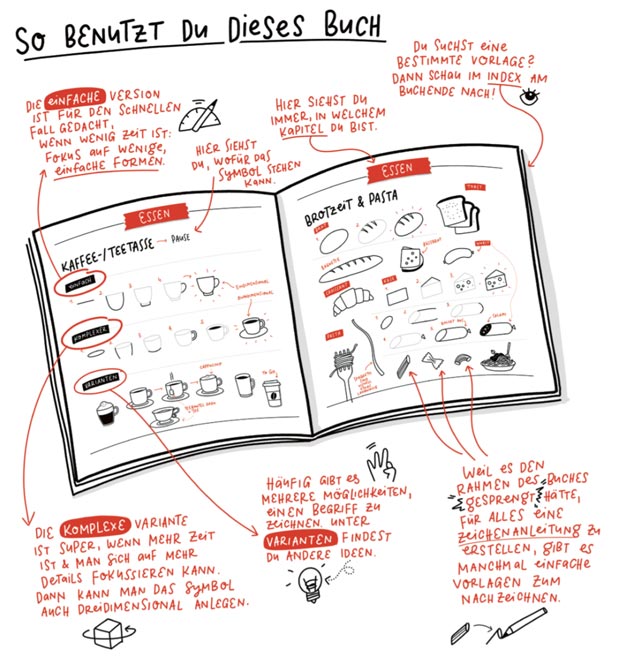 SO BENUTZT DU DIESES BUCH
DU SUCHST EINE
BESTIMMTE VORLAGE?
DANN SCHAU IM INDEX AM
BUCHENDE NACH!
DIE EINFACHE VERSION
IST FÜR DEN SCHNELLEN
FALL GEDACHT,
WENN WENIG ZEIT IST:
FOKUS AUF WENIGE,
EINFACHE FORMEN.
HIER SIEHST DU
IMMER, IN WELCHEM
KAPITEL DU BIST.
HIER SIEHST
DU, WOFÜR DAS
SYMBOL STEHEN
KANN.
ESSEN
KAFFEE-/TEETASSE → PAUSE
EINFACH
EINDIMENSIONAL
KOMPLEXER
VARIANTEN
CAPPUCCINO
TO GO
ESSEN
BROTZEIT & PASTA
TOAST
BROT
BAGUETTE
CROISSANT
KÄSE
PASTA
SALAMI
HÄUFIG GIBT ES
MEHRERE MÖGLICHKEITEN,
EINEN BEGRIFF ZU
ZEICHNEN. UNTER
VARIANTEN FINDEST
DU ANDERE IDEEN.
WEIL ES DEN
RAHMEN DES BUCHES
GESPRENGT HÄTTE,
FÜR ALLES EINE
ZEICHENANLEITUNG ZU
ERSTELLEN, GIBT ES
MANCHMAL EINFACHE
VORLAGEN ZUM
NACHZEICHNEN.
DIE KOMPLEXE VARIANTE
IST SUPER, WENN MEHR ZEIT
IST & MAN SICH AUF MEHR
DETAILS FOKUSSIEREN KANN.
DANN KANN MAN DAS SYMBOL
AUCH DREIDIMENSIONAL ANLEGEN.